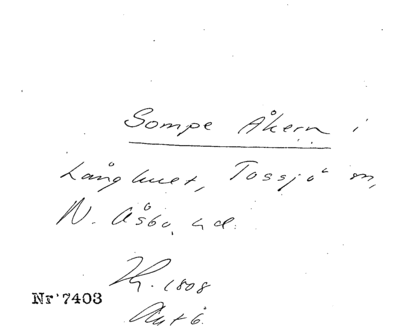 Sompe Åkern i
Långhult, Tossjö sn,
N. Åsbo hd.
Hy. 1808
Nr 7403
Akt 6.